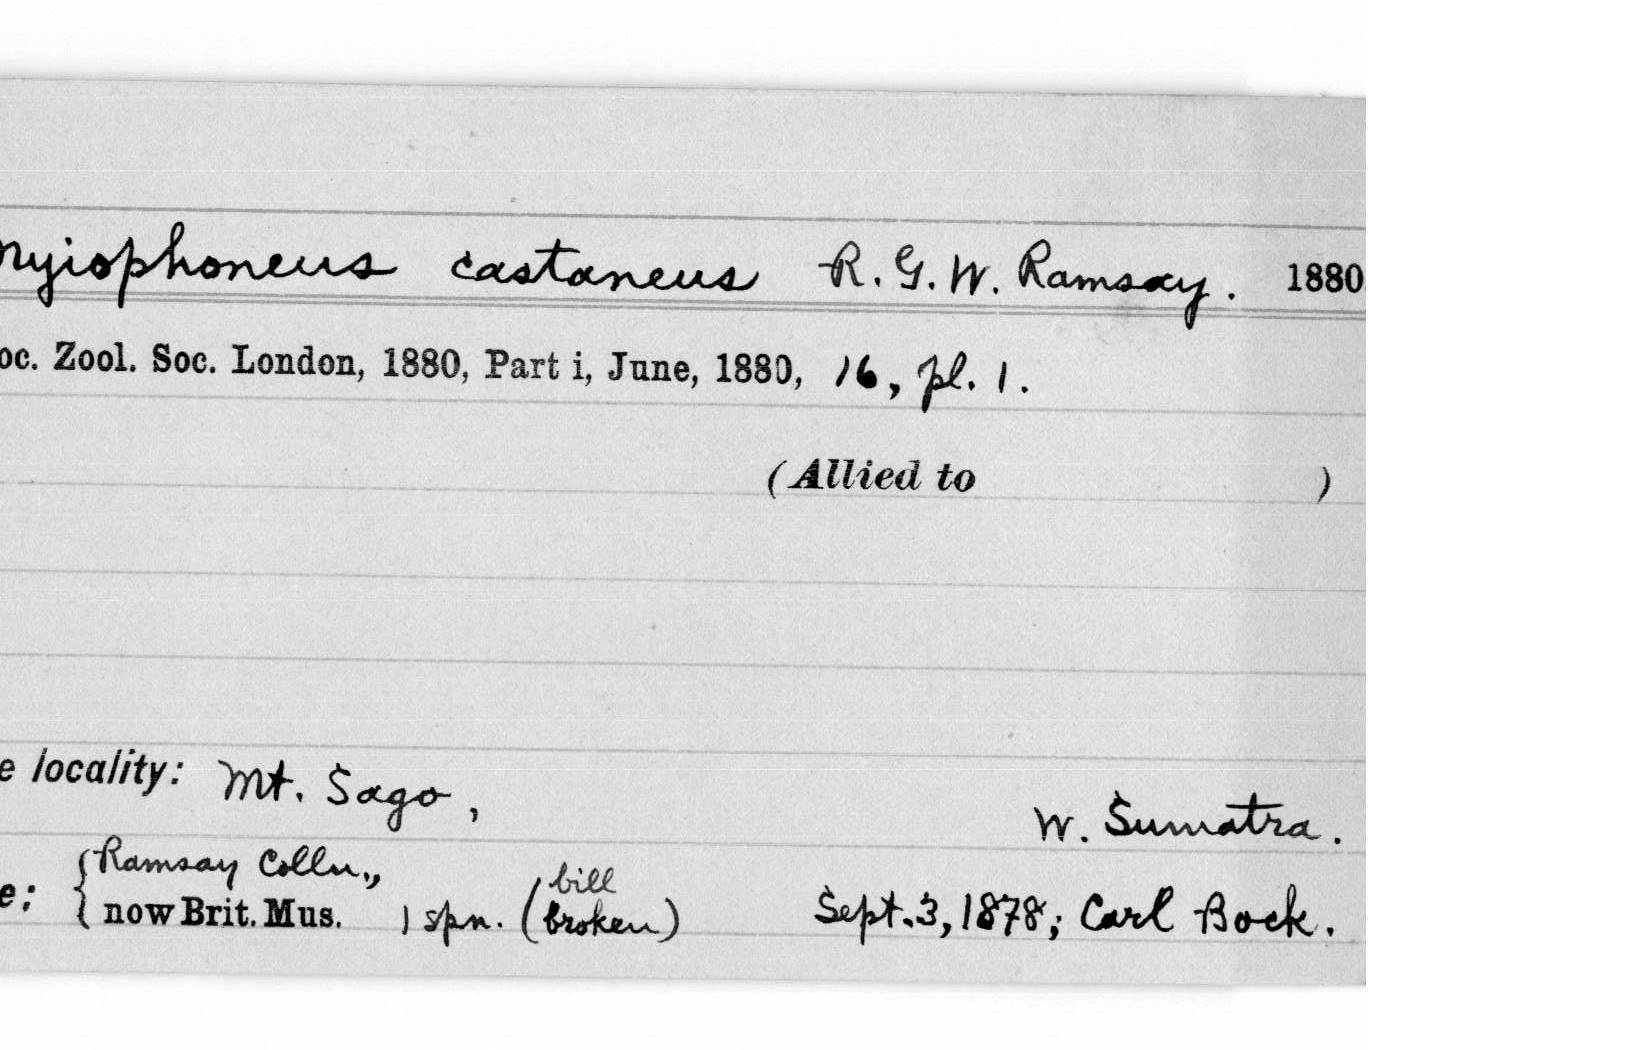 myiophoneus castaneus R. G. W. Ramsay. 1880
oc. Zool. Soc. London, 1880, Part i, June, 1880, 16, pl. 1.
(Allied to )
e locality: Mt. Sago, W. Sumatra.
e: { Ramsay Colln.,
now Brit. Mus. 1 spn. (bill broken) Sept. 3, 1878; Carl Bock.